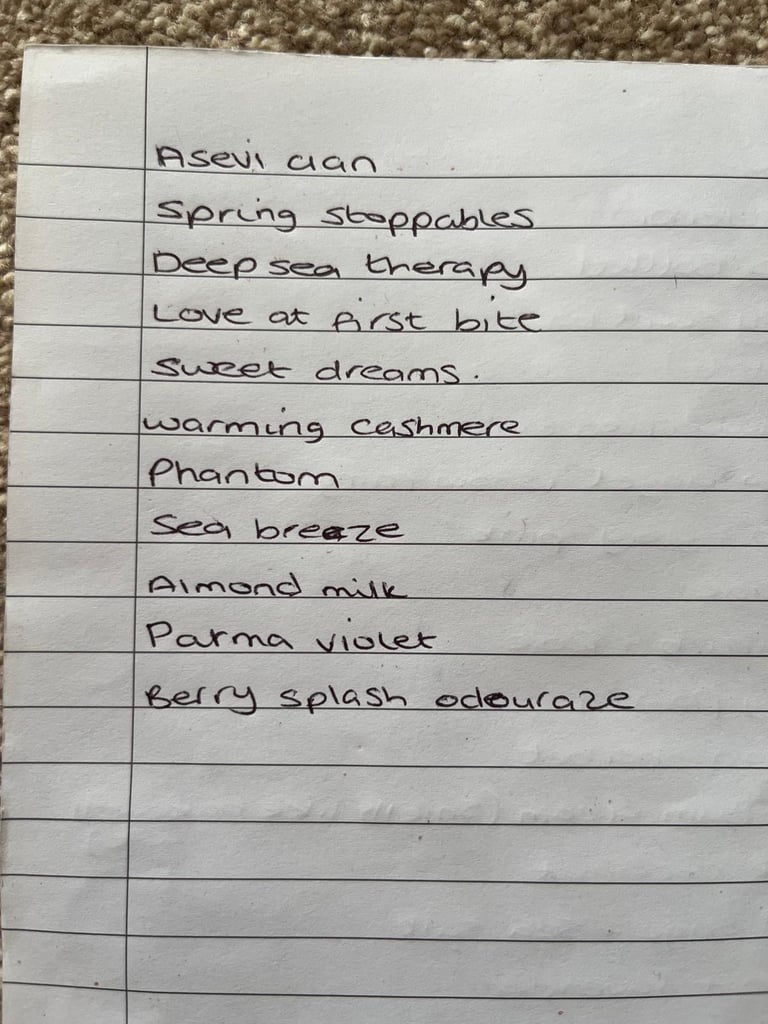 Asevi cian
Spring stoppables
Deep sea therapy
Love at first bite
Sweet dreams.
warming cashmere
Phantom
Sea breeze
Almond milk
Parma violet
Berry splash odouraze